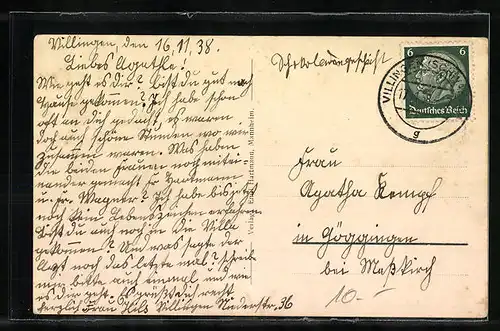 Villingen, den 16.11.38.
Liebes Agathe!
Wie geht es dir? Bist du gut nach
Hause gekommen? Ich habe schon
oft an dich gedacht, es waren
doch auch schöne Stunden wo wir
zusammen waren. Was haben
die beiden Frauen noch mitei-
nander gemacht Hartmann
u. Fr. Wagner? Ich habe bis jetzt
noch kein Lebenszeichen erfahren
Bist du auch noch in die Villa
gekommen? Und was sagte der
Arzt noch das letzte mal? Schreibe
mir bitte auch einmal und wie
es dir geht. Es grüßt dich recht
herzlich Frau Hils Villingen Niederstr. 36
Hartmann, Mannheim.
VILLINGEN (SCHW
g
6 6
Deutsches Reich
Frau
Agatha Kempf
in Göggingen
bei Meßkirch
10.-